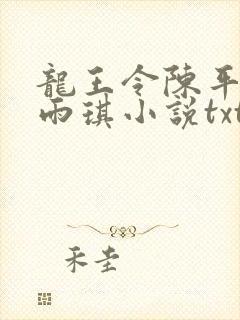 龍王令陳平
雨琪小説txt
禾圭